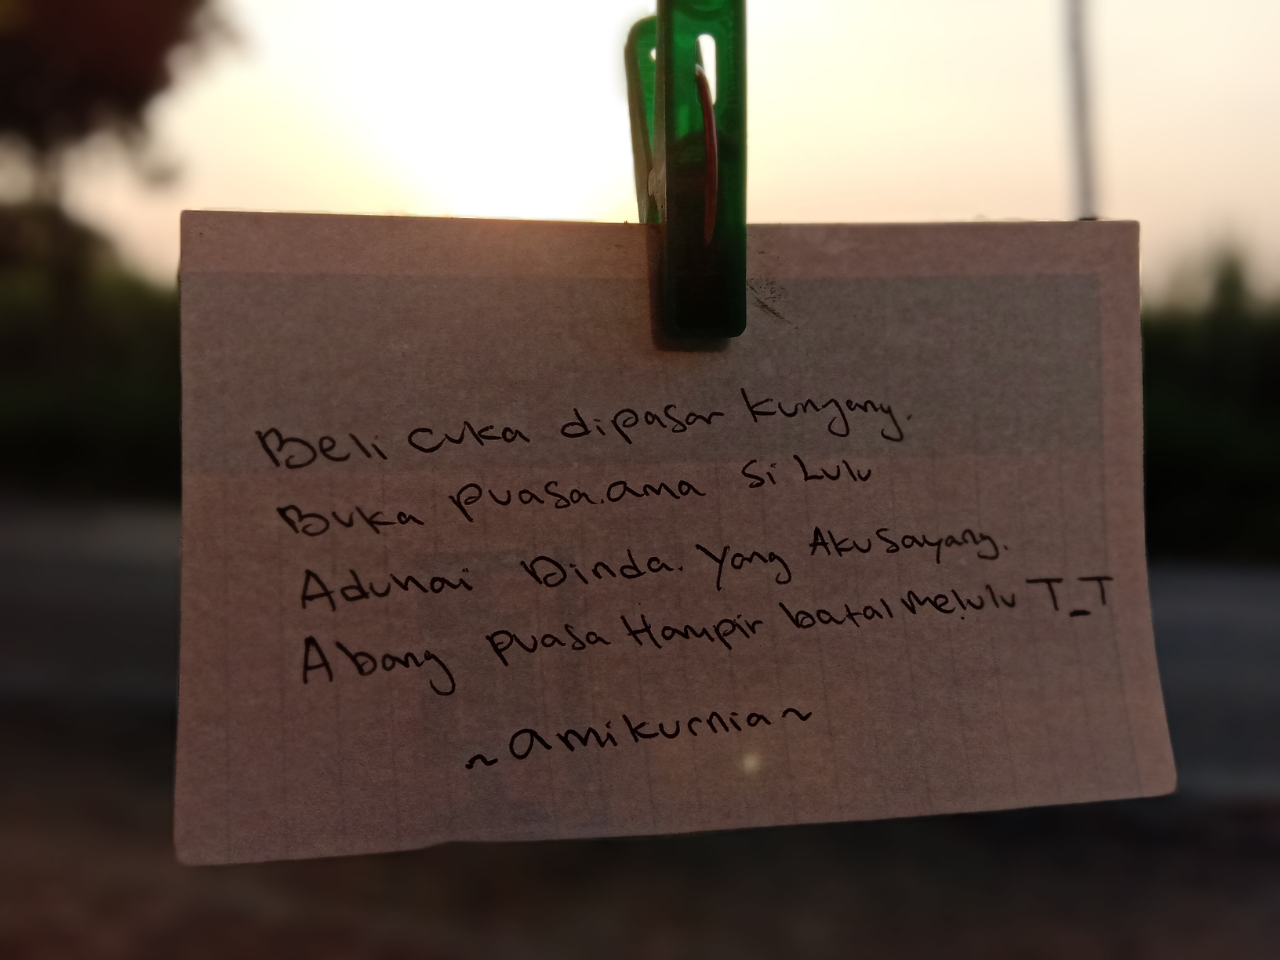 Beli cuka dipasar kunyang.
Buka puasa.ama si Lulu
Aduhai Dinda. Yang Aku sayang.
Abang puasa Hampir batal melulu T_T
~amikurnia~